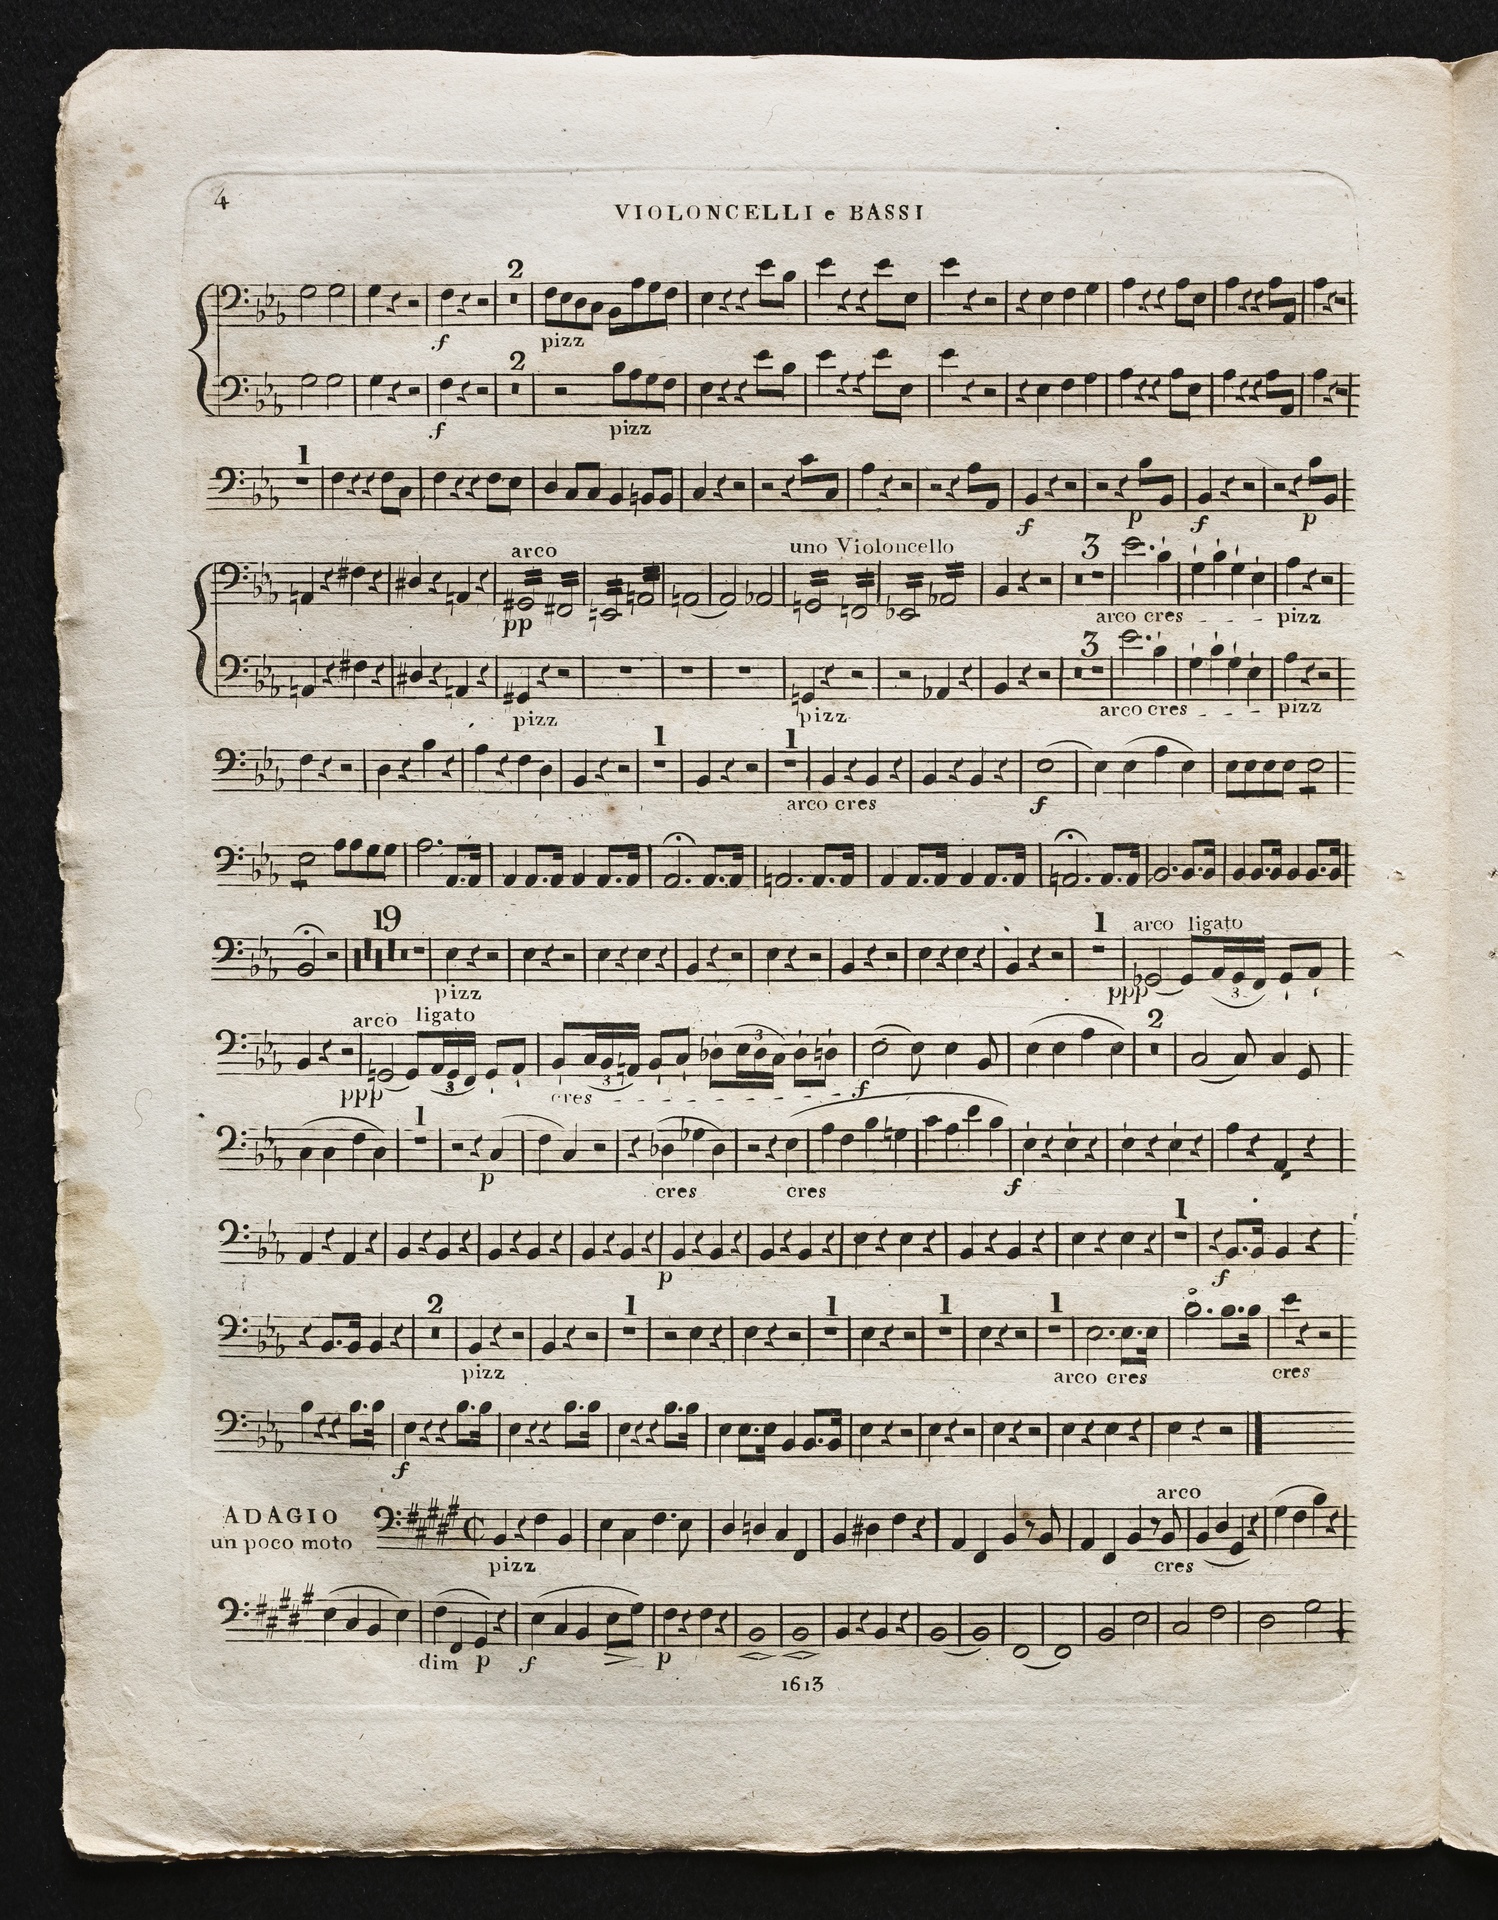 4
VIOLONCELLI e BASSI
2
f pizz
2
f pizz
1
f p f p
arco uno Violoncello 3
pp arco cres pizz
3
pizz pizz arco cres pizz
1 1
arco cres f
19 1 arco ligato
pizz ppp 3
arco ligato 3 2
ppp 3 cres 3 f
1
p cres cres f
1
p f
2 1 1 1 1
pizz arco cres cres
f
ADAGIO arco
un poco moto pizz cres
dim p f p
1613